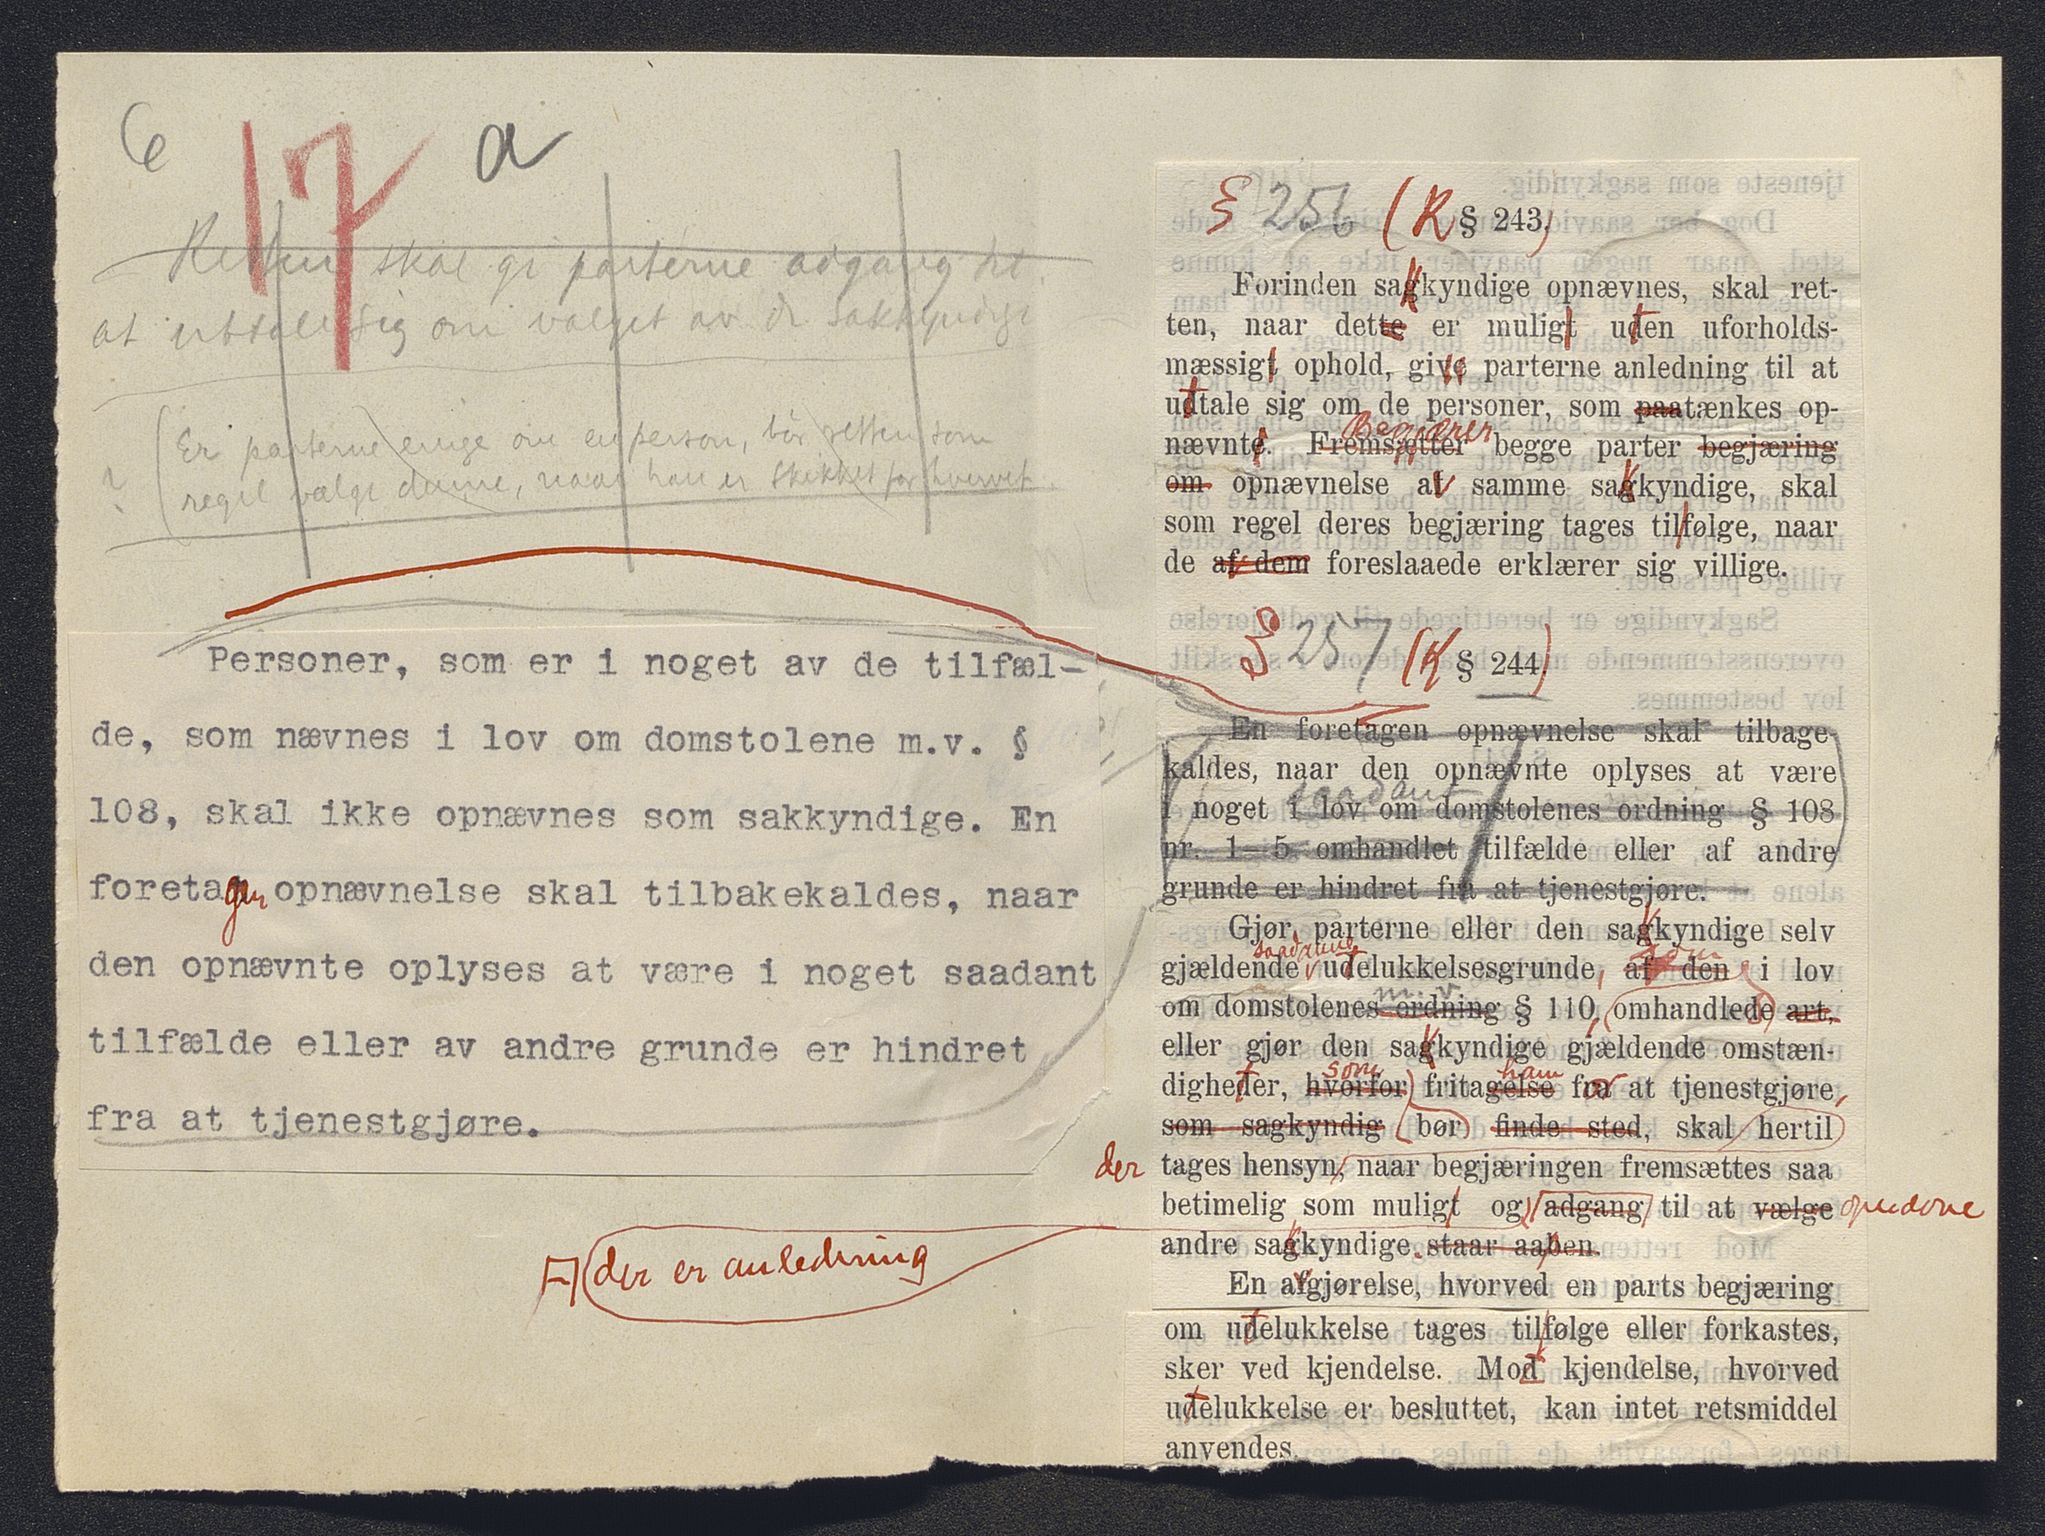 6 17 a
Retten skal gi parterne adgang til
at uttale sig om valget av de sakkyndige
? (Er parterne enige om en person, bør retten som
regel vælge denne, naar han er skikket for hvervet.
Personer, som er i noget av de tilfæl-
de, som nævnes i lov om domstolene m.v. §
108, skal ikke opnævnes som sakkyndige. En
foretagen opnævnelse skal tilbakekaldes, naar
den opnævnte oplyses at være i noget saadant
tilfælde eller av andre grunde er hindret
fra at tjenestgjøre.
der er anledning
§ 256 (K § 243.)
Forinden sagkyndige opnævnes, skal ret-
ten, naar dette er muligt uden uforholds-
mæssigt ophold, give parterne anledning til at
udtale sig om de personer, som paatænkes op-
Begjærer
nævnte. Fremsætter begge parter begjæring
om opnævnelse af samme sagkyndige, skal
som regel deres begjæring tages tilfølge, naar
de af dem foreslaaede erklærer sig villige.
§ 257 (K § 244.)
En foretagen opnævnelse skal tilbage-
kaldes, naar den opnævnte oplyses at være
saadant
i noget i lov om domstolenes ordning § 108
nr. 1—5 omhandlet tilfælde eller af andre
grunde er hindret fra at tjenestgjøre.
Gjør parterne eller den sagkyndige selv
saadanne
gjældende udelukkelsesgrunde, af den i lov
m.v.
om domstolenes ordning § 110 omhandlede art,
eller gjør den sagkyndige gjældende omstæn-
som ham
digheder, hvorfor fritagelse fra at tjenestgjøre,
som sagkyndig bør finde sted, skal hertil
der tages hensyn, naar begjæringen fremsættes saa
betimelig som muligt og adgang til at vælge
andre sagkyndige staar aaben.
En afgjørelse, hvorved en parts begjæring
om udelukkelse tages tilfølge eller forkastes,
sker ved kjendelse. Mod kjendelse, hvorved
udelukkelse er besluttet, kan intet retsmiddel
anvendes.